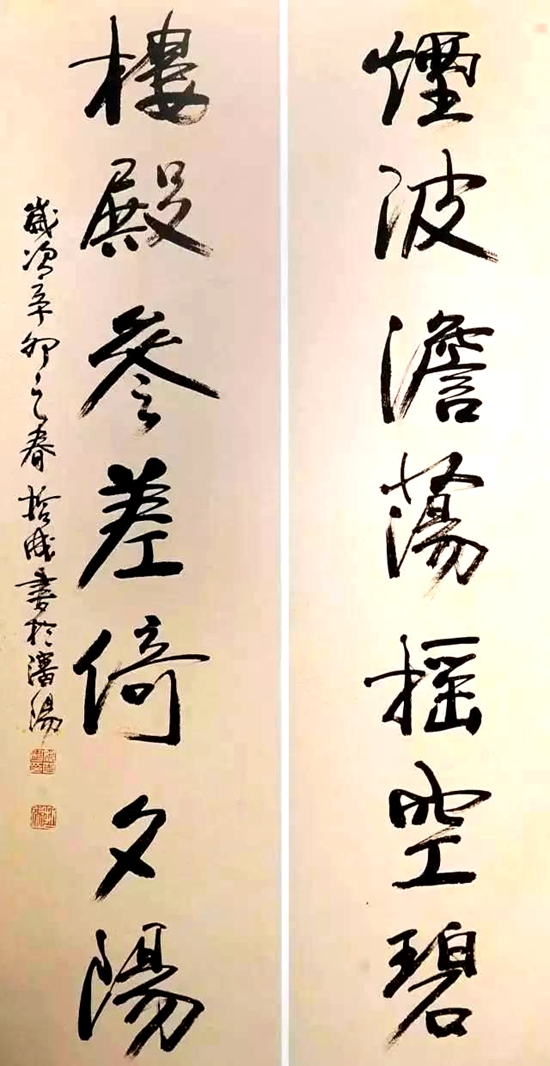 煙波澹蕩摇空碧
樓殿參差倚夕陽
歲次辛卯之春 哲成書於瀋陽